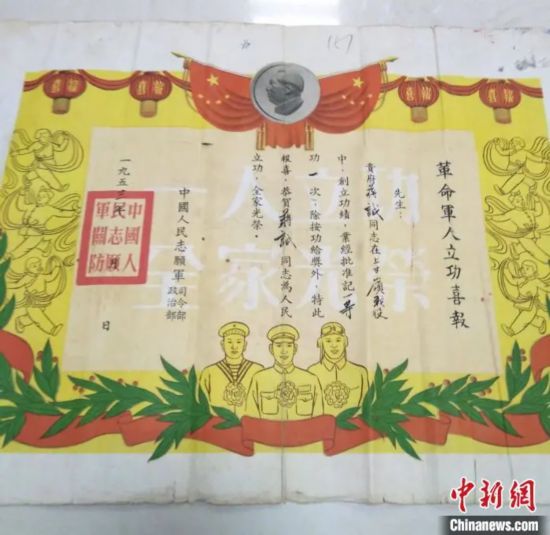 喜報
喜報
喜報
喜報
革命軍人立功喜報
先生：
貴府蔣誠同志在上甘嶺戰役
中，創立功績，業經批准記一等
功一次；除按功給獎外，特此
報喜，恭賀蔣誠同志為人民
立功，全家光榮。
中國人民志願軍
司令部
政治部
一九五三
日
中國人
民志願
軍關防
一人立功
全家光榮
中新網
Chinanews.com